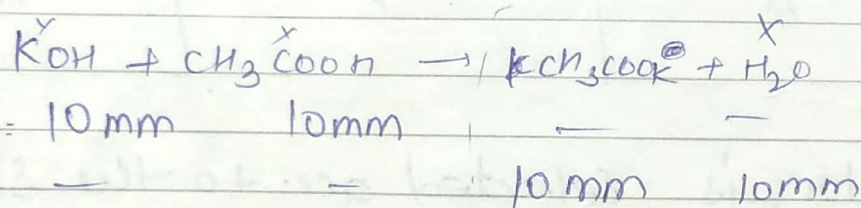 KOH + CH3COOH → KCH3COOK + H2O
= 10 mm 10 mm — —
— — 10 mm 10 mm